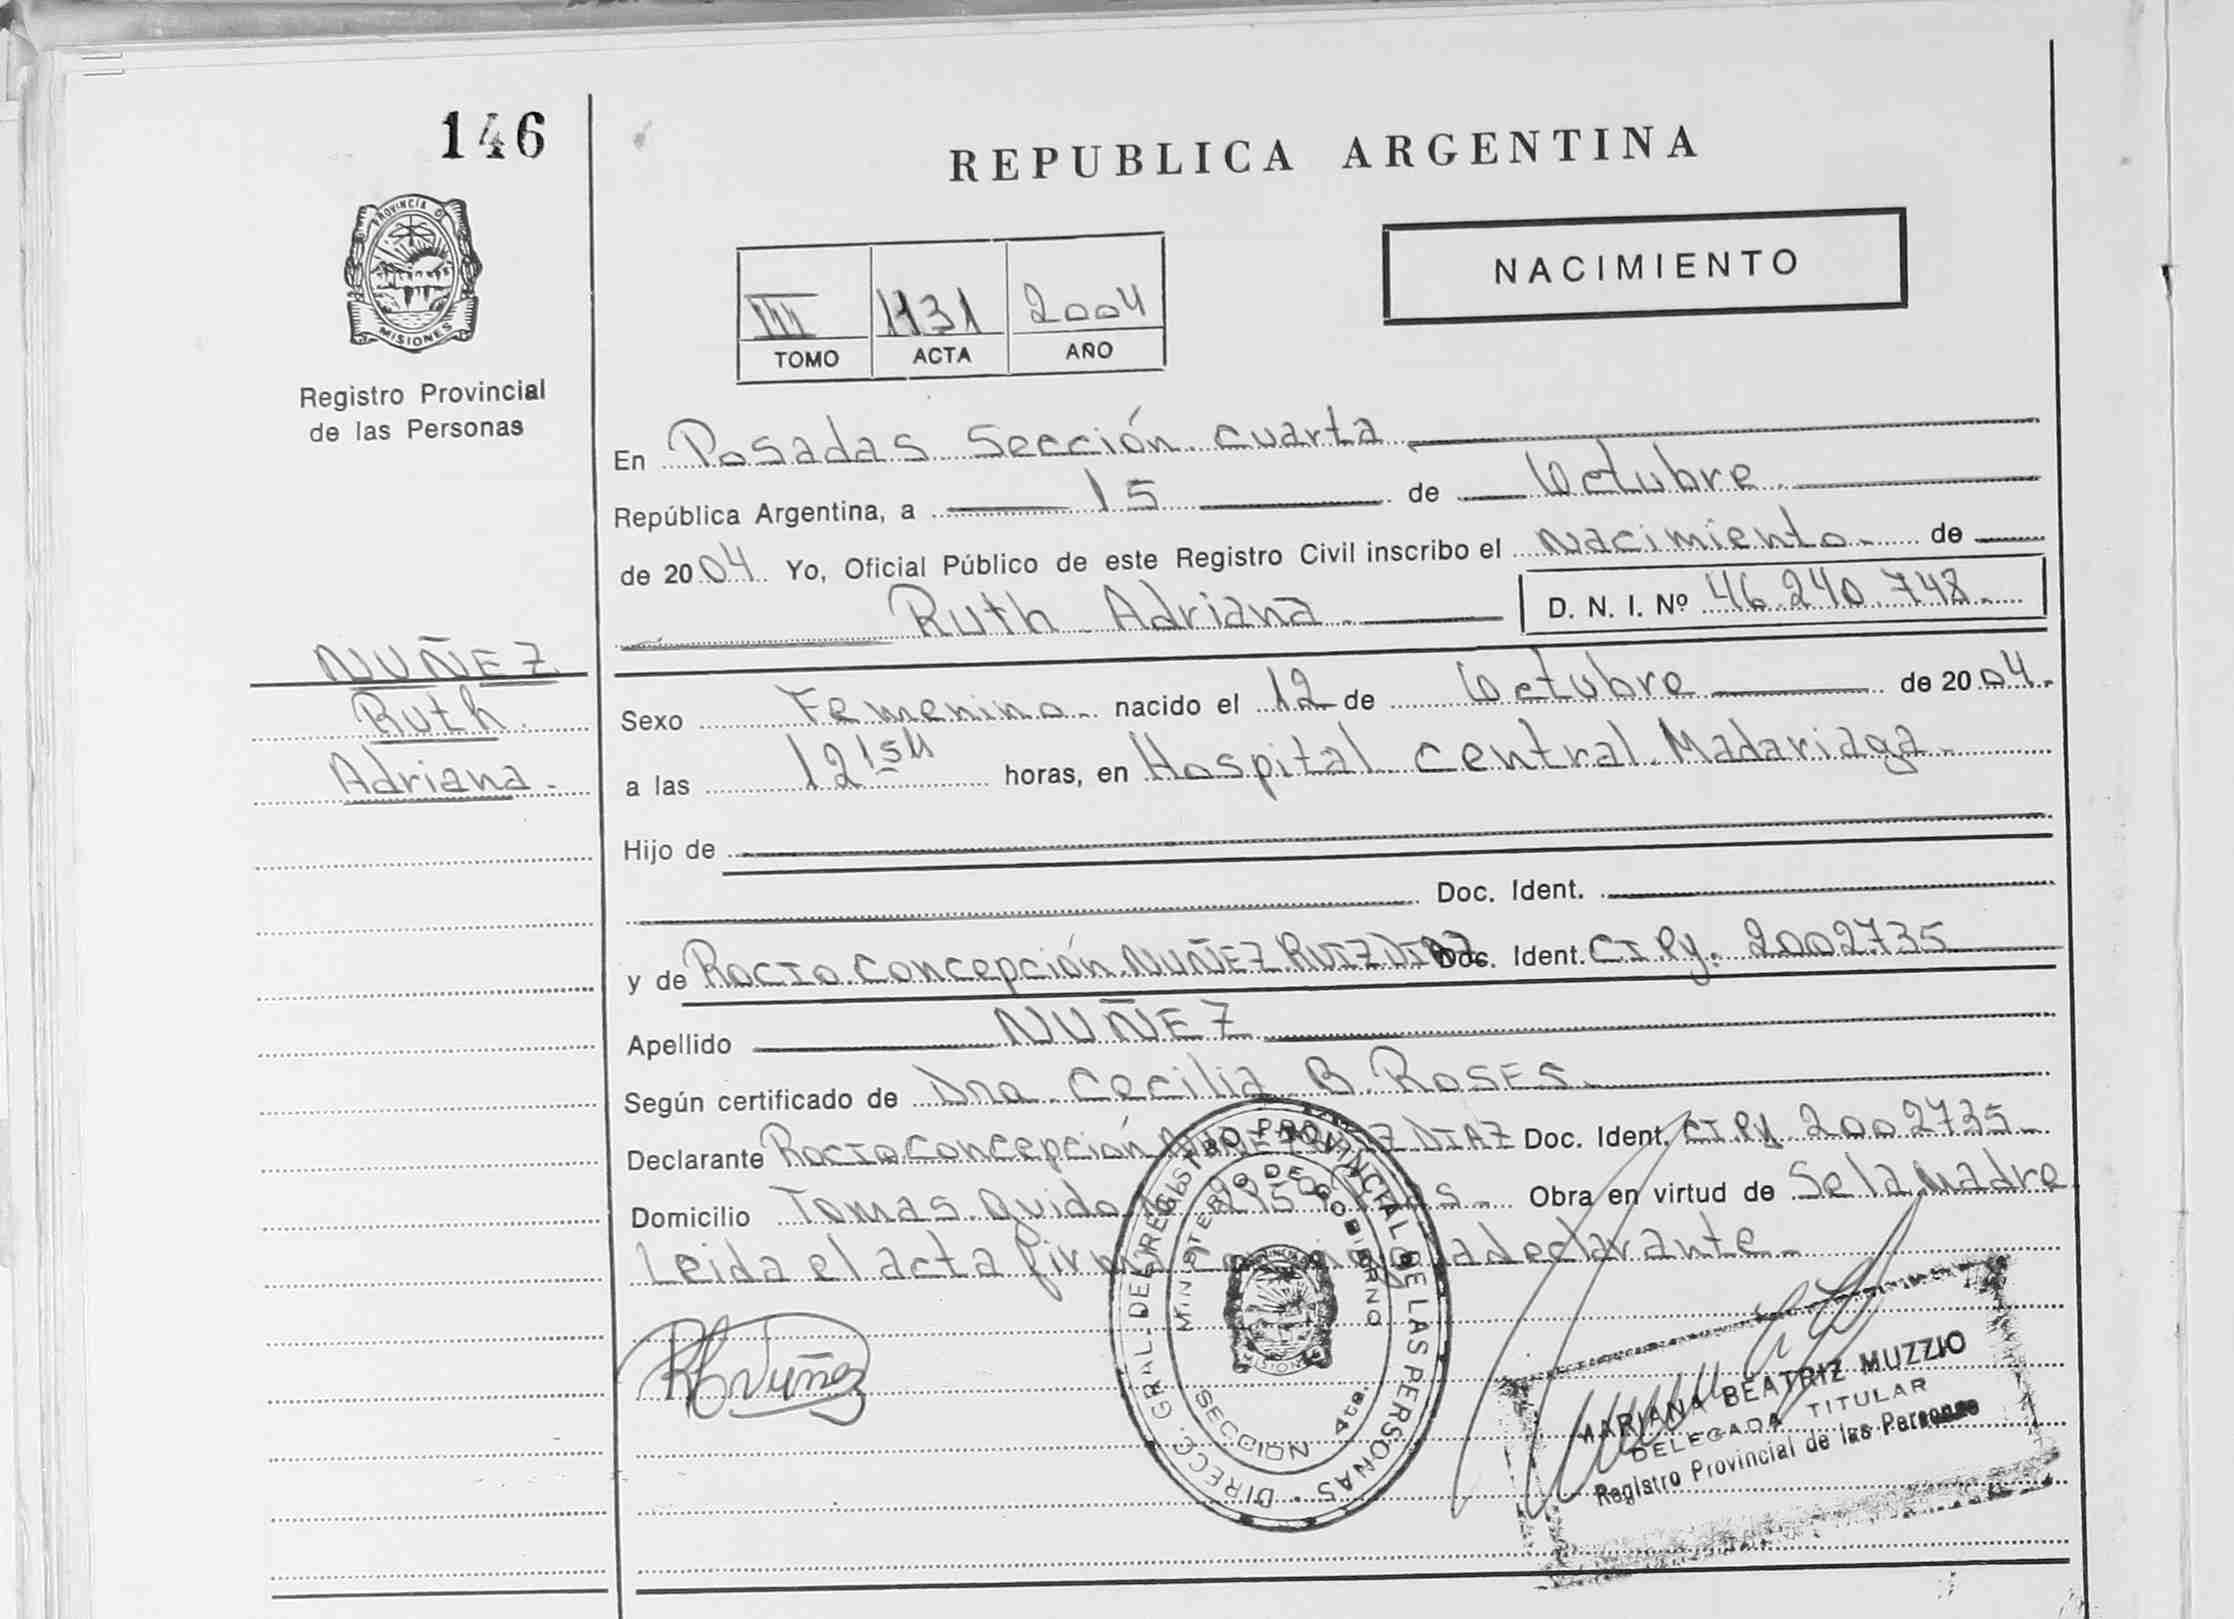 146
PROVINCIA DE
MISIONES
Registro Provincial
de las Personas
REPUBLICA ARGENTINA
NACIMIENTO
III 1131 2004
TOMO ACTA AÑO
En Posadas Sección cuarta
República Argentina, a 15 de Octubre
de 2004 Yo, Oficial Público de este Registro Civil inscribo el Nacimiento de
Ruth Adriana D. N. I. Nº 46.240.748
NUÑEZ
Ruth
Adriana
Sexo Femenino nacido el 12 de Octubre de 2004
a las 12 horas, en Hospital central Madariaga
Hijo de
Doc. Ident.
y de Rocio Concepción NUÑEZ RUIZ DIAZ Doc. Ident. CI Py. 2002735
Apellido NUÑEZ
Según certificado de Dra Cecilia B. Roses
Declarante Rocio Concepción NUÑEZ RUIZ DIAZ Doc. Ident. CI Py. 2002735
Domicilio Tomas Guido Obra en virtud de Se la Madre
Leida el acta firma la declarante
RC Nuñez
DIRECC. GRAL. DEL REGISTRO PROVINCIAL DE LAS PERSONAS
MINISTERIO DE GOBIERNO
MISIONES
SECCION 4ta.
MARIANA BEATRIZ MUZZIO
DELEGADA TITULAR
Registro Provincial de las Personas